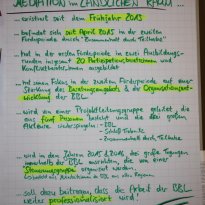 MEDIATION im LÄNDLICHEN RAUM ...
... existiert seit dem Frühjahr 2013
... befindet sich seit April 2015 in der zweiten
Förderperiode durch "Zusammenhalt durch Teilhabe"
... hat in der ersten Förderperiode in zwei Ausbildungs-
runden insgesamt 20 Partizipationsberaterinnen und
Konfliktberaterinnen ausgebildet
... hat seinen Fokus in der zweiten Förderperiode auf einer
Stärkung des Beratungsangebots & der Organisationsent-
wicklung der BBL
... wird von einer Projektleitungsgruppe geleitet, die
aus fünf Personen besteht und die drei großen
Akteure widerspiegelt: - BBL
- Schloß Trebnitz
- Zusammenhalt durch Teilhabe
... wird in den Jahren 2015 & 2016 drei große Tagungen
innerhalb der BBL ausrichten, die von einer
"Steuerungsgruppe" organisiert werden.
... soll dazu beitragen, dass die Arbeit der BBL
weiter professionalisiert wird!